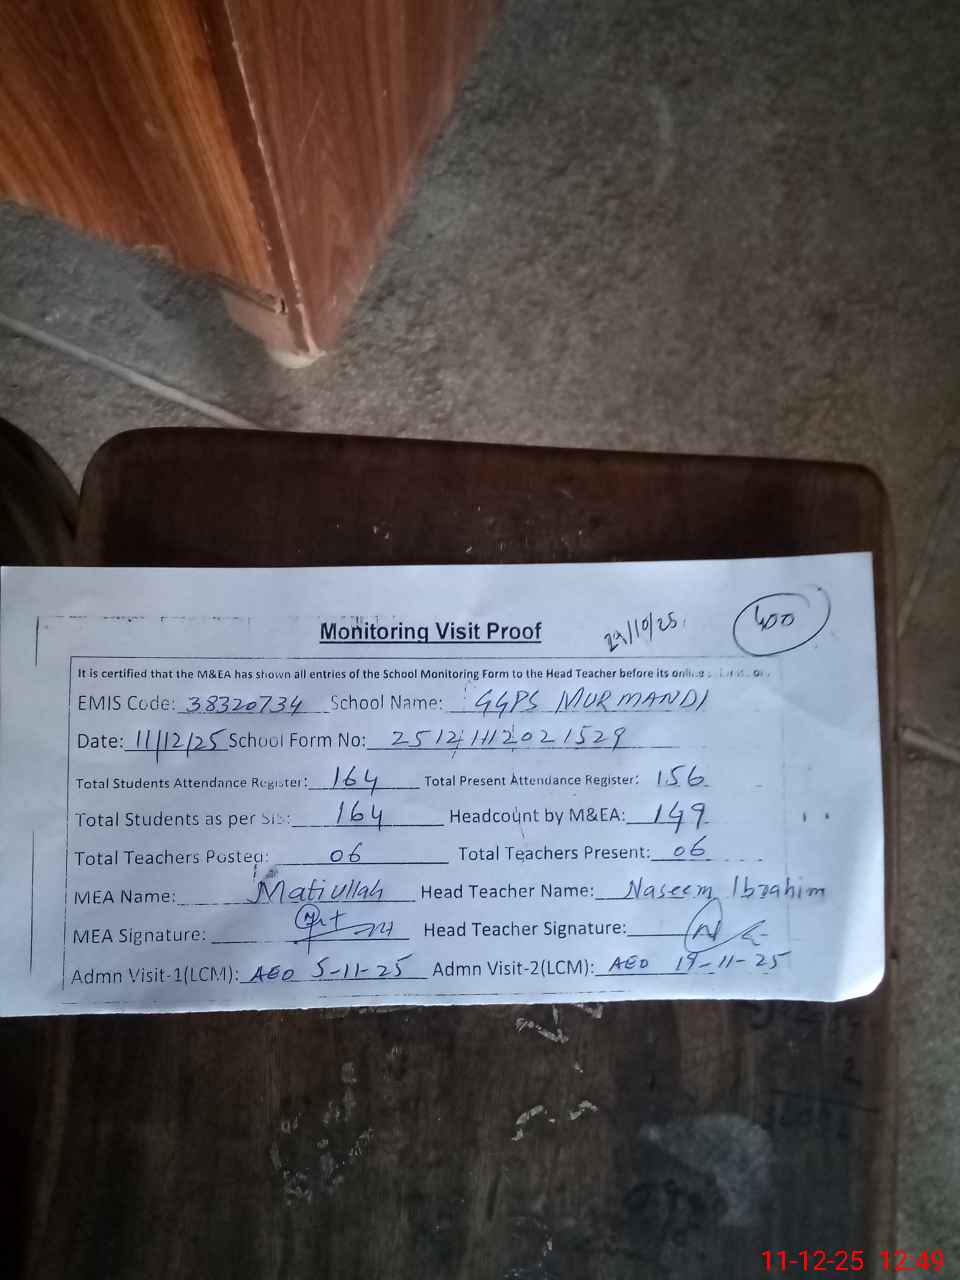 Monitoring Visit Proof
29/10/25
400
It is certified that the M&EA has shown all entries of the School Monitoring Form to the Head Teacher before its online
EMIS Code: 38320734 School Name: GGPS MURMANDI
Date: 11/12/25 School Form No: 2512111202 1529
Total Students Attendance Register: 164 Total Present Attendance Register: 156
Total Students as per SIS: 164 Headcount by M&EA: 149
Total Teachers Posted: 06 Total Teachers Present: 06
MEA Name: Matiullah Head Teacher Name: Naseem Ibrahim
MEA Signature: Head Teacher Signature:
Admn Visit-1(LCM): AEO 5-11-25 Admn Visit-2(LCM): AEO 19-11-25
11-12-25 12:49